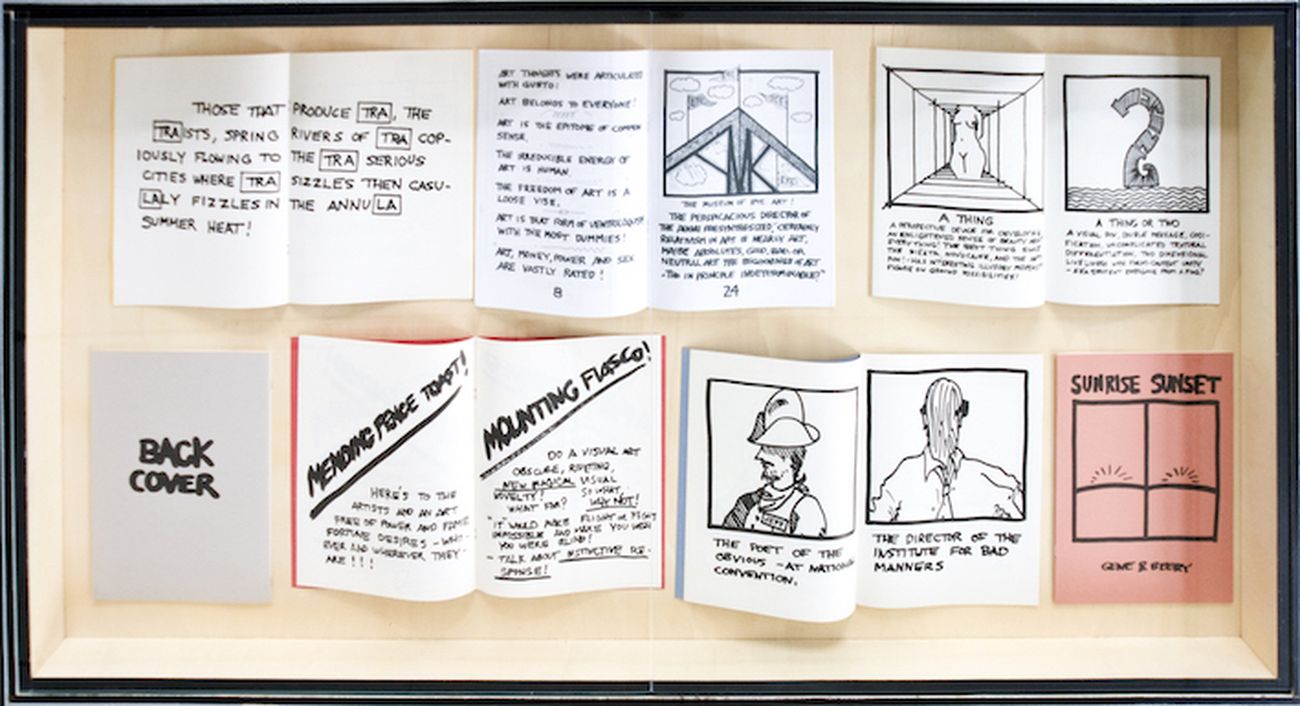 THOSE THAT PRODUCE TRA, THE
TRAISTS, SPRING RIVERS OF TRA COP-
IOUSLY FLOWING TO THE TRA SERIOUS
CITIES WHERE TRA SIZZLES THEN CASU-
LALY FIZZLES IN THE ANNULA
SUMMER HEAT!
ART THOUGHTS WERE ARTICULATED
WITH GUSTO!
ART BELONGS TO EVERYONE!
ART IS THE EPITOME OF COMMON
SENSE.
THE IRREDUCIBLE ENERGY OF
ART IS HUMAN.
THE FREEDOM OF ART IS A
LOOSE VISE.
ART IS THAT FORM OF VENTRILOQUISM
WITH THE MOST DUMMIES!
ART, MONEY, POWER AND SEX
ARE VASTLY RATED!
8
THE MUSEUM OF ART!
THE PERSPICACIOUS DIRECTOR OF
THE CERTAINLY
RELATIVISM IN ART IS REALLY ART,
MAYBE ABSOLUTES, GOOD, BAD OR
NEUTRAL ART THE OF ART
IN PRINCIPLE INDETERMINABLE?"
24
A THING
A PERSPECTIVE DEVICE FOR DEVELOPING
AN ENLIGHTENED SENSE OF BEAUTY AND
EVERYTHING! THE BEST THING SINCE
THE AND THE
FUN! HAS INTERESTING ILLUSORY
FIGURE OR GROUND POSSIBILITIES!
A THING OR TWO
A VISUAL PUN, DOUBLE MESSAGE,
UNCOMPLICATED
DIFFERENTIATION, TWO DIMENSIONAL
BACK
COVER
MENDING FENCE TOAST!
HERE'S TO THE
ARTISTS AND AN ART
FREE OF POWER AND FAME
FORTUNE DESIRES - WHO-
EVER AND WHEREVER THEY
ARE!!!
MOUNTING FIASCO!
DO A VISUAL ART
OBSCURE, RIVETING,
NEW MAGICAL VISUAL
NOVELTY! SO WHAT
WHAT FOR? WHY NOT!
IT WOULD MAKE FLIGHT OR FIGHT
IMPOSSIBLE AND MAKE YOU WISH
YOU WERE BLIND!
- TALK ABOUT INSTINCTIVE RE-
SPONSE!
THE POET OF THE
OBVIOUS - AT NATIONAL
CONVENTION.
THE DIRECTOR OF THE
INSTITUTE FOR BAD
MANNERS
SUNRISE SUNSET
GENE BEERY